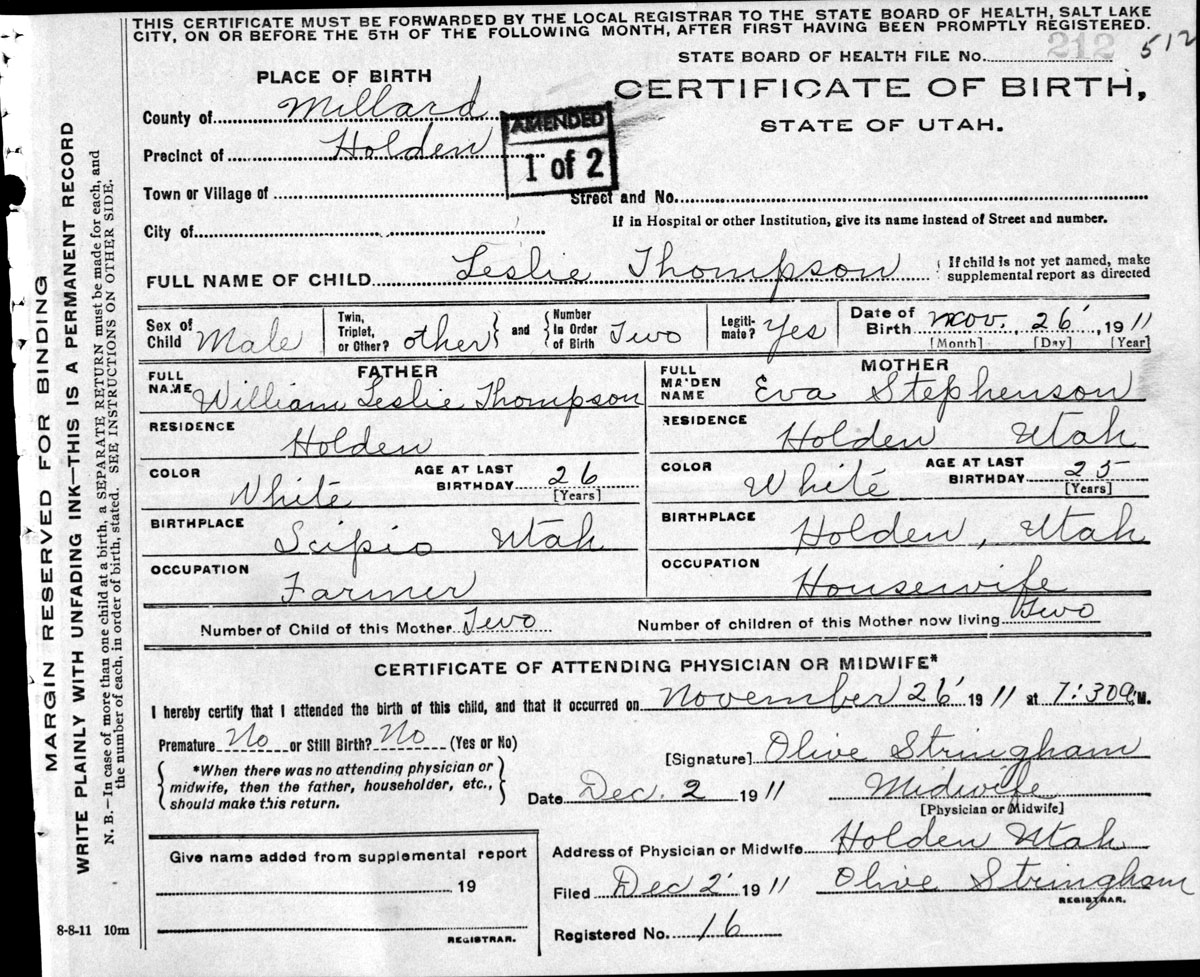 THIS CERTIFICATE MUST BE FORWARDED BY THE LOCAL REGISTRAR TO THE STATE BOARD OF HEALTH, SALT LAKE
CITY, ON OR BEFORE THE 5TH OF THE FOLLOWING MONTH, AFTER FIRST HAVING BEEN PROMPTLY REGISTERED.
STATE BOARD OF HEALTH FILE No. 212 512
PLACE OF BIRTH
CERTIFICATE OF BIRTH,
STATE OF UTAH.
County of Millard
AMENDED
1 of 2
Precinct of Holden
Town or Village of
Street and No.
City of
If in Hospital or other Institution, give its name instead of Street and number.
FULL NAME OF CHILD Leslie Thompson { If child is not yet named, make
supplemental report as directed
Sex of Child Male
Twin, Triplet, or Other? other } and { Number In Order of Birth Two
Legiti-mate? Yes
Date of Birth Nov. 26, 1911
[Month] [Day] [Year]
FATHER
FULL NAME William Leslie Thompson
RESIDENCE Holden
COLOR White AGE AT LAST BIRTHDAY 26 [Years]
BIRTHPLACE Scipio Utah
OCCUPATION Farmer
MOTHER
FULL MAIDEN NAME Eva Stephenson
RESIDENCE Holden Utah
COLOR White AGE AT LAST BIRTHDAY 25 [Years]
BIRTHPLACE Holden, Utah
OCCUPATION Housewife
Number of Child of this Mother Two Number of children of this Mother now living Two
CERTIFICATE OF ATTENDING PHYSICIAN OR MIDWIFE*
I hereby certify that I attended the birth of this child, and that it occurred on November 26 1911 at 7:30 a. M.
Premature No or Still Birth? No (Yes or No)
{ *When there was no attending physician or
midwife, then the father, householder, etc.,
should make this return. }
[Signature] Olive Stringham
Date Dec. 2 1911 Midwife
[Physician or Midwife]
Give name added from supplemental report
19
REGISTRAR.
Address of Physician or Midwife Holden Utah
Filed Dec 2 1911 Olive Stringham
REGISTRAR.
Registered No. 16
8-8-11 10m
MARGIN RESERVED FOR BINDING
WRITE PLAINLY WITH UNFADING INK—THIS IS A PERMANENT RECORD
N. B.—In case of more than one child at a birth, a SEPARATE RETURN must be made for each, and
the number of each, in order of birth, stated. SEE INSTRUCTIONS ON OTHER SIDE.